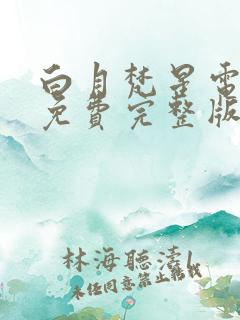 白月梵星電
免費完整版
林海聽濤1
未任同意禁止轉載